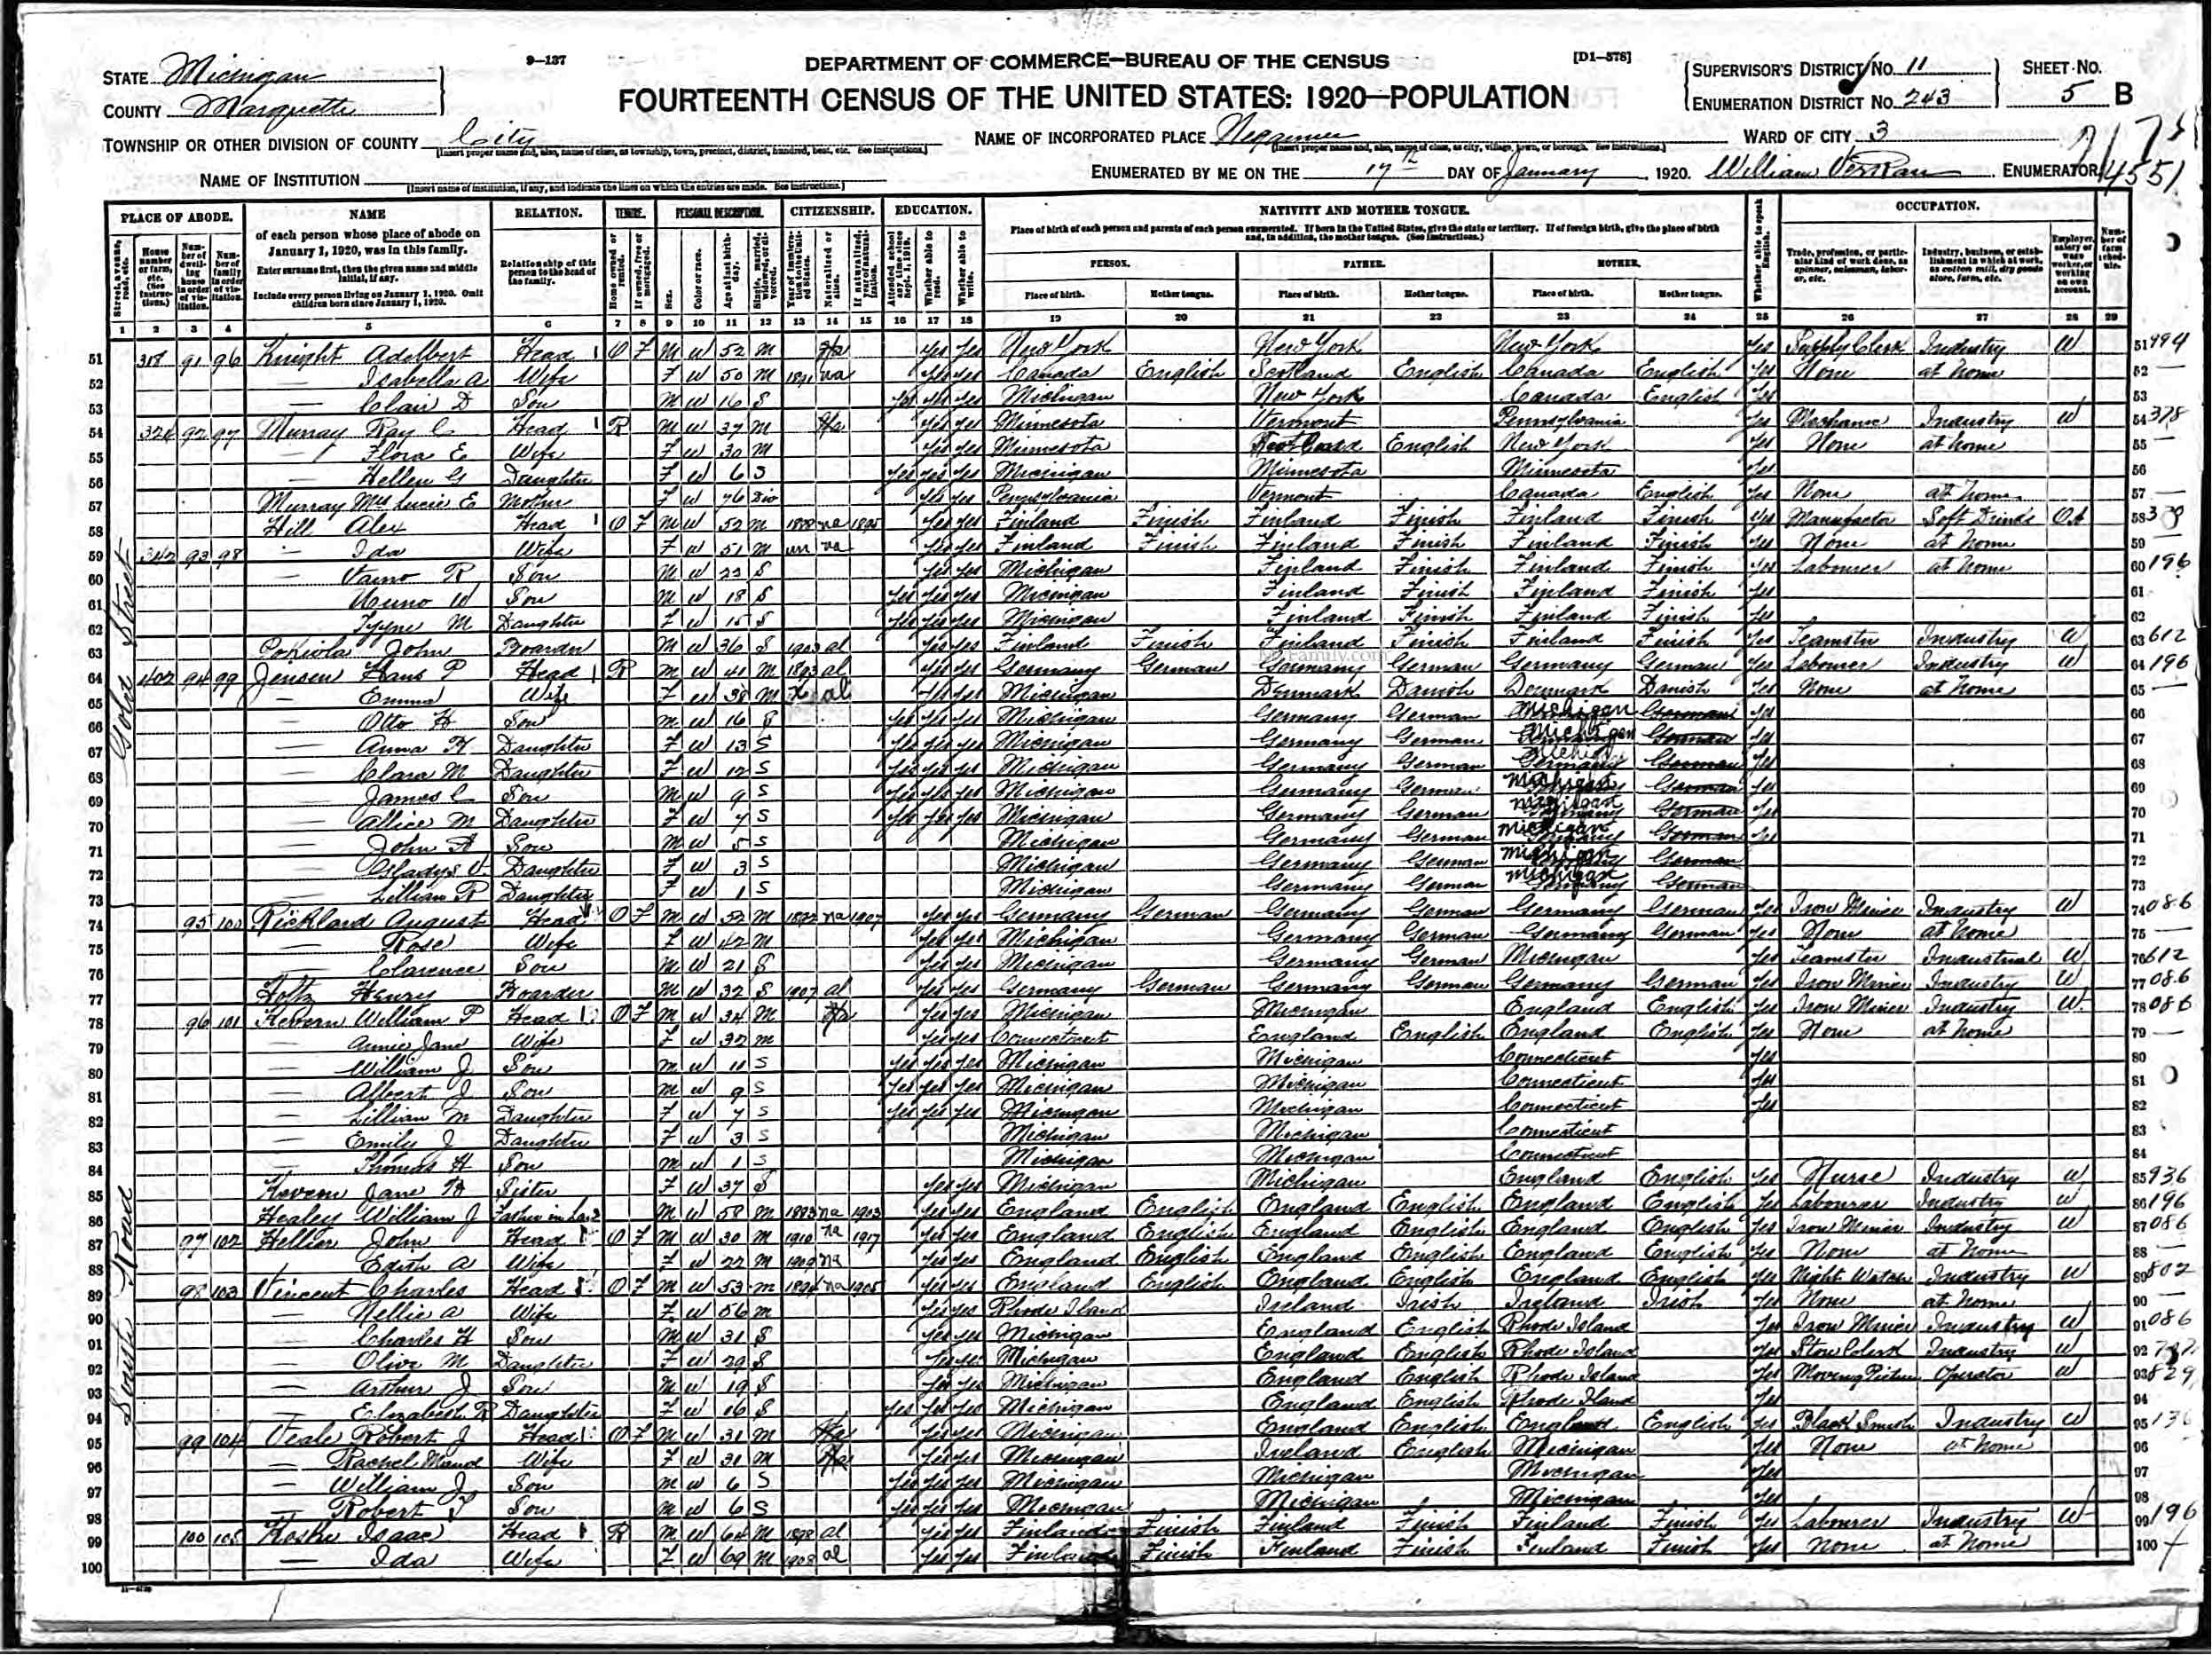 9—137
DEPARTMENT OF COMMERCE—BUREAU OF THE CENSUS
[D1—578]
STATE Michigan
COUNTY Marquette
FOURTEENTH CENSUS OF THE UNITED STATES: 1920—POPULATION
SUPERVISOR'S DISTRICT No. 11
ENUMERATION DISTRICT No. 243
SHEET No. 5 B
TOWNSHIP OR OTHER DIVISION OF COUNTY City
NAME OF INCORPORATED PLACE Negaunee
WARD OF CITY 3
NAME OF INSTITUTION
ENUMERATED BY ME ON THE 17th DAY OF January, 1920. William ENUMERATOR
4551
PLACE OF ABODE. NAME RELATION. TENURE. PERSONAL DESCRIPTION. CITIZENSHIP. EDUCATION. NATIVITY AND MOTHER TONGUE. OCCUPATION.
of each person whose place of abode on January 1, 1920, was in this family.
Enter surname first, then the given name and middle initial, if any.
Include every person living on January 1, 1920. Omit children born since January 1, 1920.
Relationship of this person to the head of the family.
Place of birth of each person and parents of each person enumerated. If born in the United States, give the state or territory. If of foreign birth, give the place of birth and, in addition, the mother tongue. (See instructions.)
PERSON. FATHER. MOTHER.
Place of birth. Mother tongue. Place of birth. Mother tongue. Place of birth. Mother tongue.
1 2 3 4 5 6 7 8 9 10 11 12 13 14 15 16 17 18 19 20 21 22 23 24 25 26 27 28 29
Gold Street
South Road
51 318 91 96 Knight Adelbert Head O F M W 52 M Na Yes Yes New York New York New York Yes Supply Clerk Industry W 51 994
52 — Isabella A Wife F W 50 M na Yes Yes Canada English Scotland English Canada English Yes None at home 52 —
53 — Clair D Son M W 16 S Yes Yes Yes Michigan New York Canada English Yes 53
54 324 92 97 Murray Ray C Head R M W 37 M Na Yes Yes Minnesota Vermont Pennsylvania Yes Mechanic Industry W 54 378
55 — Flora E Wife F W 30 M Yes Yes Minnesota Scotland English New York Yes None at home 55 —
56 — Hellen G Daughter F W 6 S Yes Yes Yes Michigan Minnesota Minnesota Yes 56
57 Murray Mrs Lucie E Mother F W 76 Div Yes Yes Pennsylvania Vermont Canada English Yes None at home 57 —
58 Hill Alex Head O F M W 52 M 1888 na 1895 Yes Yes Finland Finish Finland Finish Finland Finish Yes Manufactor Soft Drinks OA 58
59 342 93 98 — Ida Wife F W 51 M un na Yes Yes Finland Finish Finland Finish Finland Finish Yes None at home 59 —
60 — Vaino R Son M W 22 S Yes Yes Michigan Finland Finish Finland Finish Yes Labourer at home 60 196
61 — Urno W Son M W 18 S Yes Yes Yes Michigan Finland Finish Finland Finish Yes 61
62 — Tyyne M Daughter F W 15 S Yes Yes Yes Michigan Finland Finish Finland Finish Yes 62
63 John Boarder M W 36 S 1903 al Yes Yes Finland Finish Finland Finish Finland Finish Yes Teamster Industry W 63 612
64 402 94 99 Jensen Hans P Head R M W 41 M 1893 al Yes Yes Germany German Germany German Germany German Yes Labourer Industry W 64 196
65 — Emma Wife F W 38 M X al Yes Yes Michigan Denmark Danish Denmark Danish Yes None at home 65 —
66 — Otto H Son M W 16 S Yes Yes Yes Michigan Germany German Michigan German Yes 66
67 — Anna K Daughter F W 13 S Yes Yes Yes Michigan Germany German Michigan German Yes 67
68 — Clara M Daughter F W 12 S Yes Yes Yes Michigan Germany German Michigan German Yes 68
69 — James C Son M W 9 S Yes Yes Yes Michigan Germany German Michigan German Yes 69
70 — Allice M Daughter F W 7 S Yes Yes Yes Michigan Germany German Michigan German Yes 70
71 — John A Son M W 5 S Michigan Germany German Michigan German Yes 71
72 — Gladys V. Daughter F W 3 S Michigan Germany German Michigan German 72
73 — Lillian R Daughter F W 1 S Michigan Germany German Michigan German 73
74 95 100 Rickland August Head O F M W 52 M 1892 na 1907 Yes Yes Germany German Germany German Germany German Yes Iron Miner Industry W 74 086
75 — Rose Wife F W 42 M Yes Yes Michigan Germany German Germany German Yes None at home 75 —
76 — Clarence Son M W 21 S Yes Yes Michigan Germany German Michigan Yes Teamster Industrial W 76 612
77 Holtz Henry Boarder M W 32 S 1907 al Yes Yes Germany German Germany German Germany German Yes Iron Miner Industry W 77 086
78 96 101 Kevern William P Head O F M W 34 M Na Yes Yes Michigan Michigan England English Yes Iron Miner Industry W 78 086
79 — Annie Jane Wife F W 32 M Yes Yes Connecticut England English England English Yes None at home 79 —
80 — William J Son M W 11 S Yes Yes Yes Michigan Michigan Connecticut Yes 80
81 — Albert J Son M W 9 S Yes Yes Yes Michigan Michigan Connecticut Yes 81
82 — Lillian M Daughter F W 7 S Yes Yes Yes Michigan Michigan Connecticut Yes 82
83 — Emily J Daughter F W 3 S Michigan Michigan Connecticut 83
84 — Thomas H Son M W 1 S Michigan Michigan Connecticut 84
85 Kevern Jane B Sister F W 37 S Yes Yes Michigan Michigan England English Yes Nurse Industry W 85 936
86 Healey William J Father in Law M W 58 M 1883 na 1903 Yes Yes England English England English England English Yes Labourer Industry W 86 196
87 97 102 Hellier John Head O F M W 30 M 1910 na 1917 Yes Yes England English England English England English Yes Iron Miner Industry W 87 086
88 — Edith A Wife F W 22 M 1909 na Yes Yes England English England English England English Yes None at home 88 —
89 98 103 Vincent Charles Head O F M W 53 M na 1905 Yes Yes England English England English England English Yes Night Watch Industry W 89 802
90 — Nellie A Wife F W 56 M Yes Yes Rhode Iland Ireland Irish Ireland Irish Yes None at home 90 —
91 — Charles H Son M W 31 S Yes Yes Michigan England English Rhode Island Yes Iron Miner Industry W 91 086
92 — Olive M Daughter F W 29 S Yes Yes Michigan England English Rhode Island Yes Store Clerk Industry W 92
93 — Arthur J Son M W 19 S Yes Yes Michigan England English Rhode Island Yes Moving Picture Operator W 93 829
94 — Elizabeth R Daughter F W 16 S Yes Yes Yes Michigan England English Rhode Iland Yes 94
95 99 104 Veale Robert J Head O F M W 31 M Na Yes Yes Michigan England English England English Yes Black Smith Industry W 95
96 — Rachel Maud Wife F W 31 M Na Yes Yes Michigan Ireland English Michigan Yes None at home 96
97 — William J Son M W 6 S Yes Yes Yes Michigan Michigan Michigan Yes 97
98 — Robert T Son M W 6 S Yes Yes Yes Michigan Michigan Michigan Yes 98
99 100 105 Koski Isaac Head R M W 64 M 1898 al Yes Yes Finland Finish Finland Finish Finland Finish Yes Labourer Industry W 99 196
100 — Ida Wife F W 69 M 1908 al Yes Yes Finland Finish Finland Finish Finland Finish Yes None at home 100